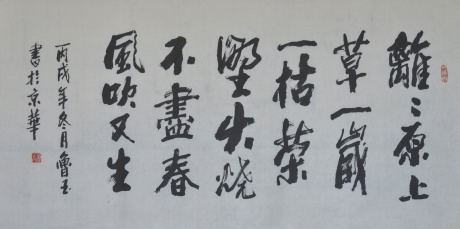 離〻原上
草一歲
一枯榮
野火燒
不盡春
風吹又生
丙戌年冬月魯玉
書於京華